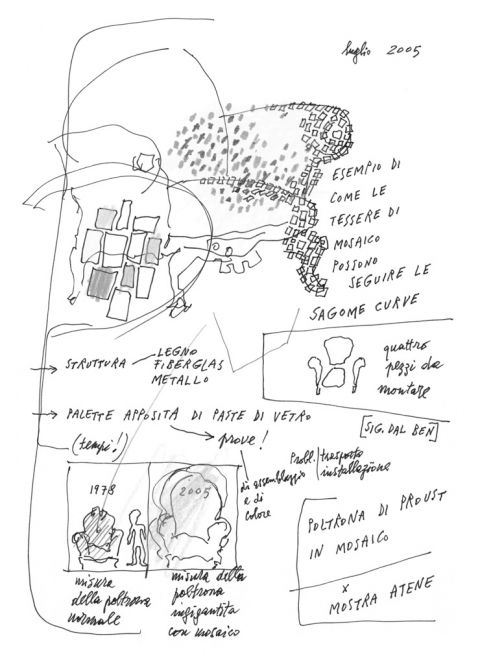 luglio 2005
ESEMPIO DI
COME LE
TESSERE DI
MOSAICO
POSSONO
SEGUIRE LE
SAGOME CURVE
quattro
pezzi da
montare
STRUTTURA
LEGNO
FIBERGLAS
METALLO
PALETTE APPOSITA DI PASTE DI VETRO
(tempi!)
prove!
[SIG. DAL BEN]
di assemblaggio
e di
colore
Probl. trasporto
installazione
1978
2005
POLTRONA DI PROUST
IN MOSAICO
x
MOSTRA ATENE
misura
della poltrona
normale
misura della
poltrona
ingigantita
con mosaico